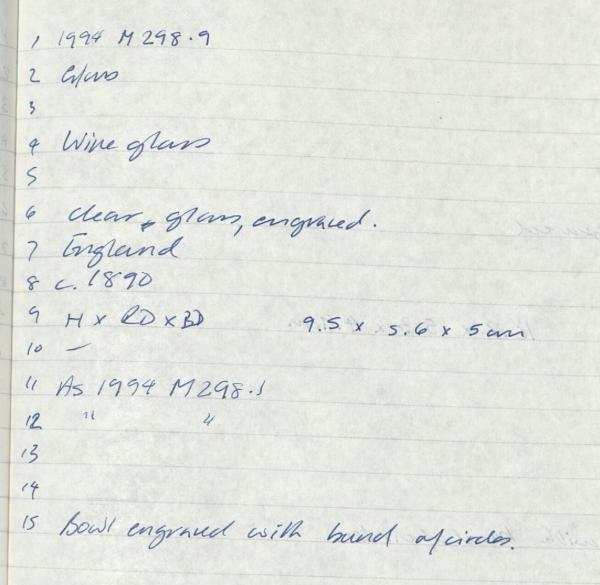 1 1994 M 298.9
2 Glass
3
4 Wine glass
5
6 clear, glass, engraved.
7 England
8 c. 1890
9 H x RD x BD 9.5 x 5.6 x 5cm
10 —
11 As 1994 M298.1
12 " "
13
14
15 Bowl engraved with band of circles.